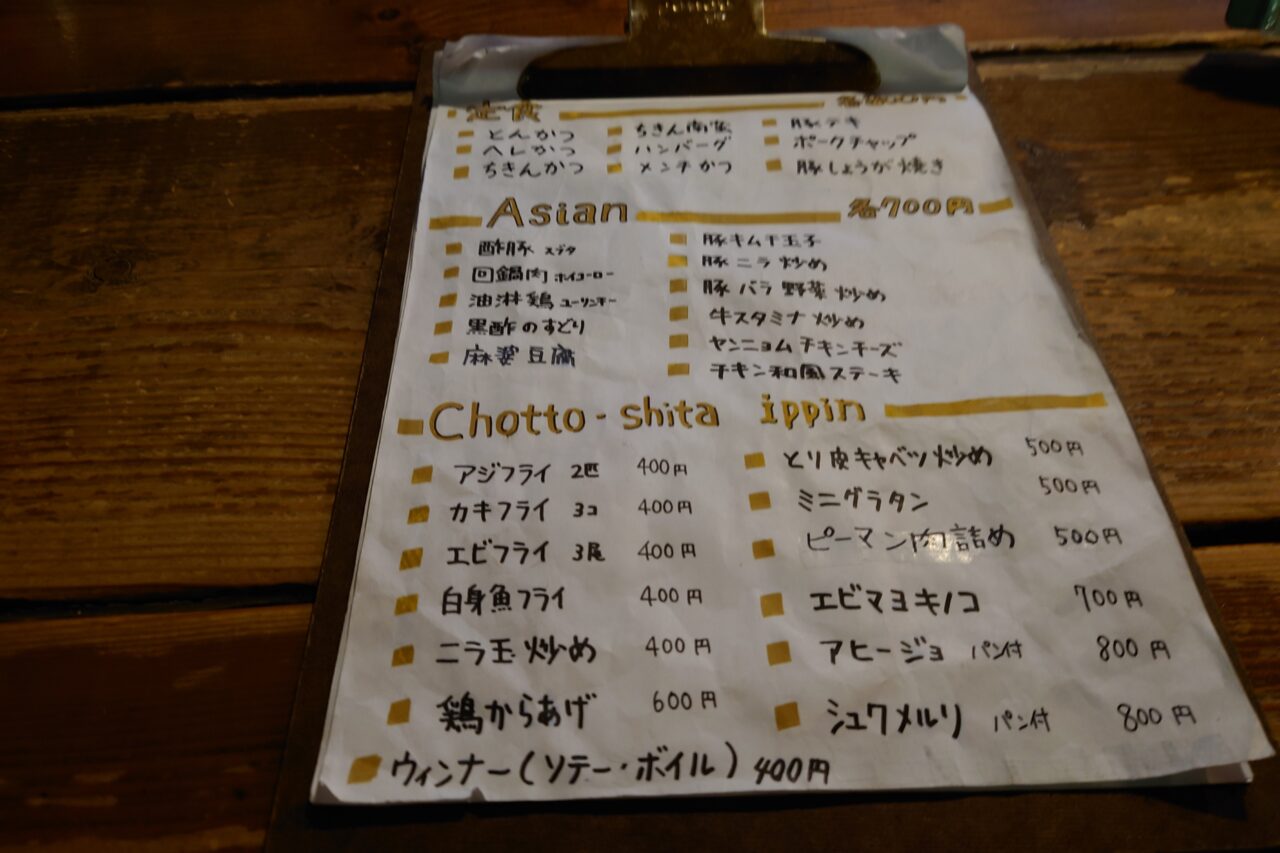 定食
とんかつ
ヘレかつ
ちきんかつ
ちきん南蛮
ハンバーグ
メンチかつ
豚テキ
ポークチャップ
豚しょうが焼き
Asian 各700円
酢豚 スブタ
回鍋肉 ホイコーロー
油淋鶏 ユーリンチー
黒酢のすどり
麻婆豆腐
豚キムチ玉子
豚ニラ炒め
豚バラ野菜炒め
牛スタミナ炒め
ヤンニョムチキンチーズ
チキン和風ステーキ
Chotto-shita ippin
アジフライ 2匹 400円
カキフライ 3コ 400円
エビフライ 3尾 400円
白身魚フライ 400円
ニラ玉炒め 400円
鶏からあげ 600円
ウィンナー(ソテー・ボイル) 400円
とり皮キャベツ炒め 500円
ミニグラタン 500円
ピーマン肉詰め 500円
エビマヨキノコ 700円
アヒージョ パン付 800円
シュクメルリ パン付 800円